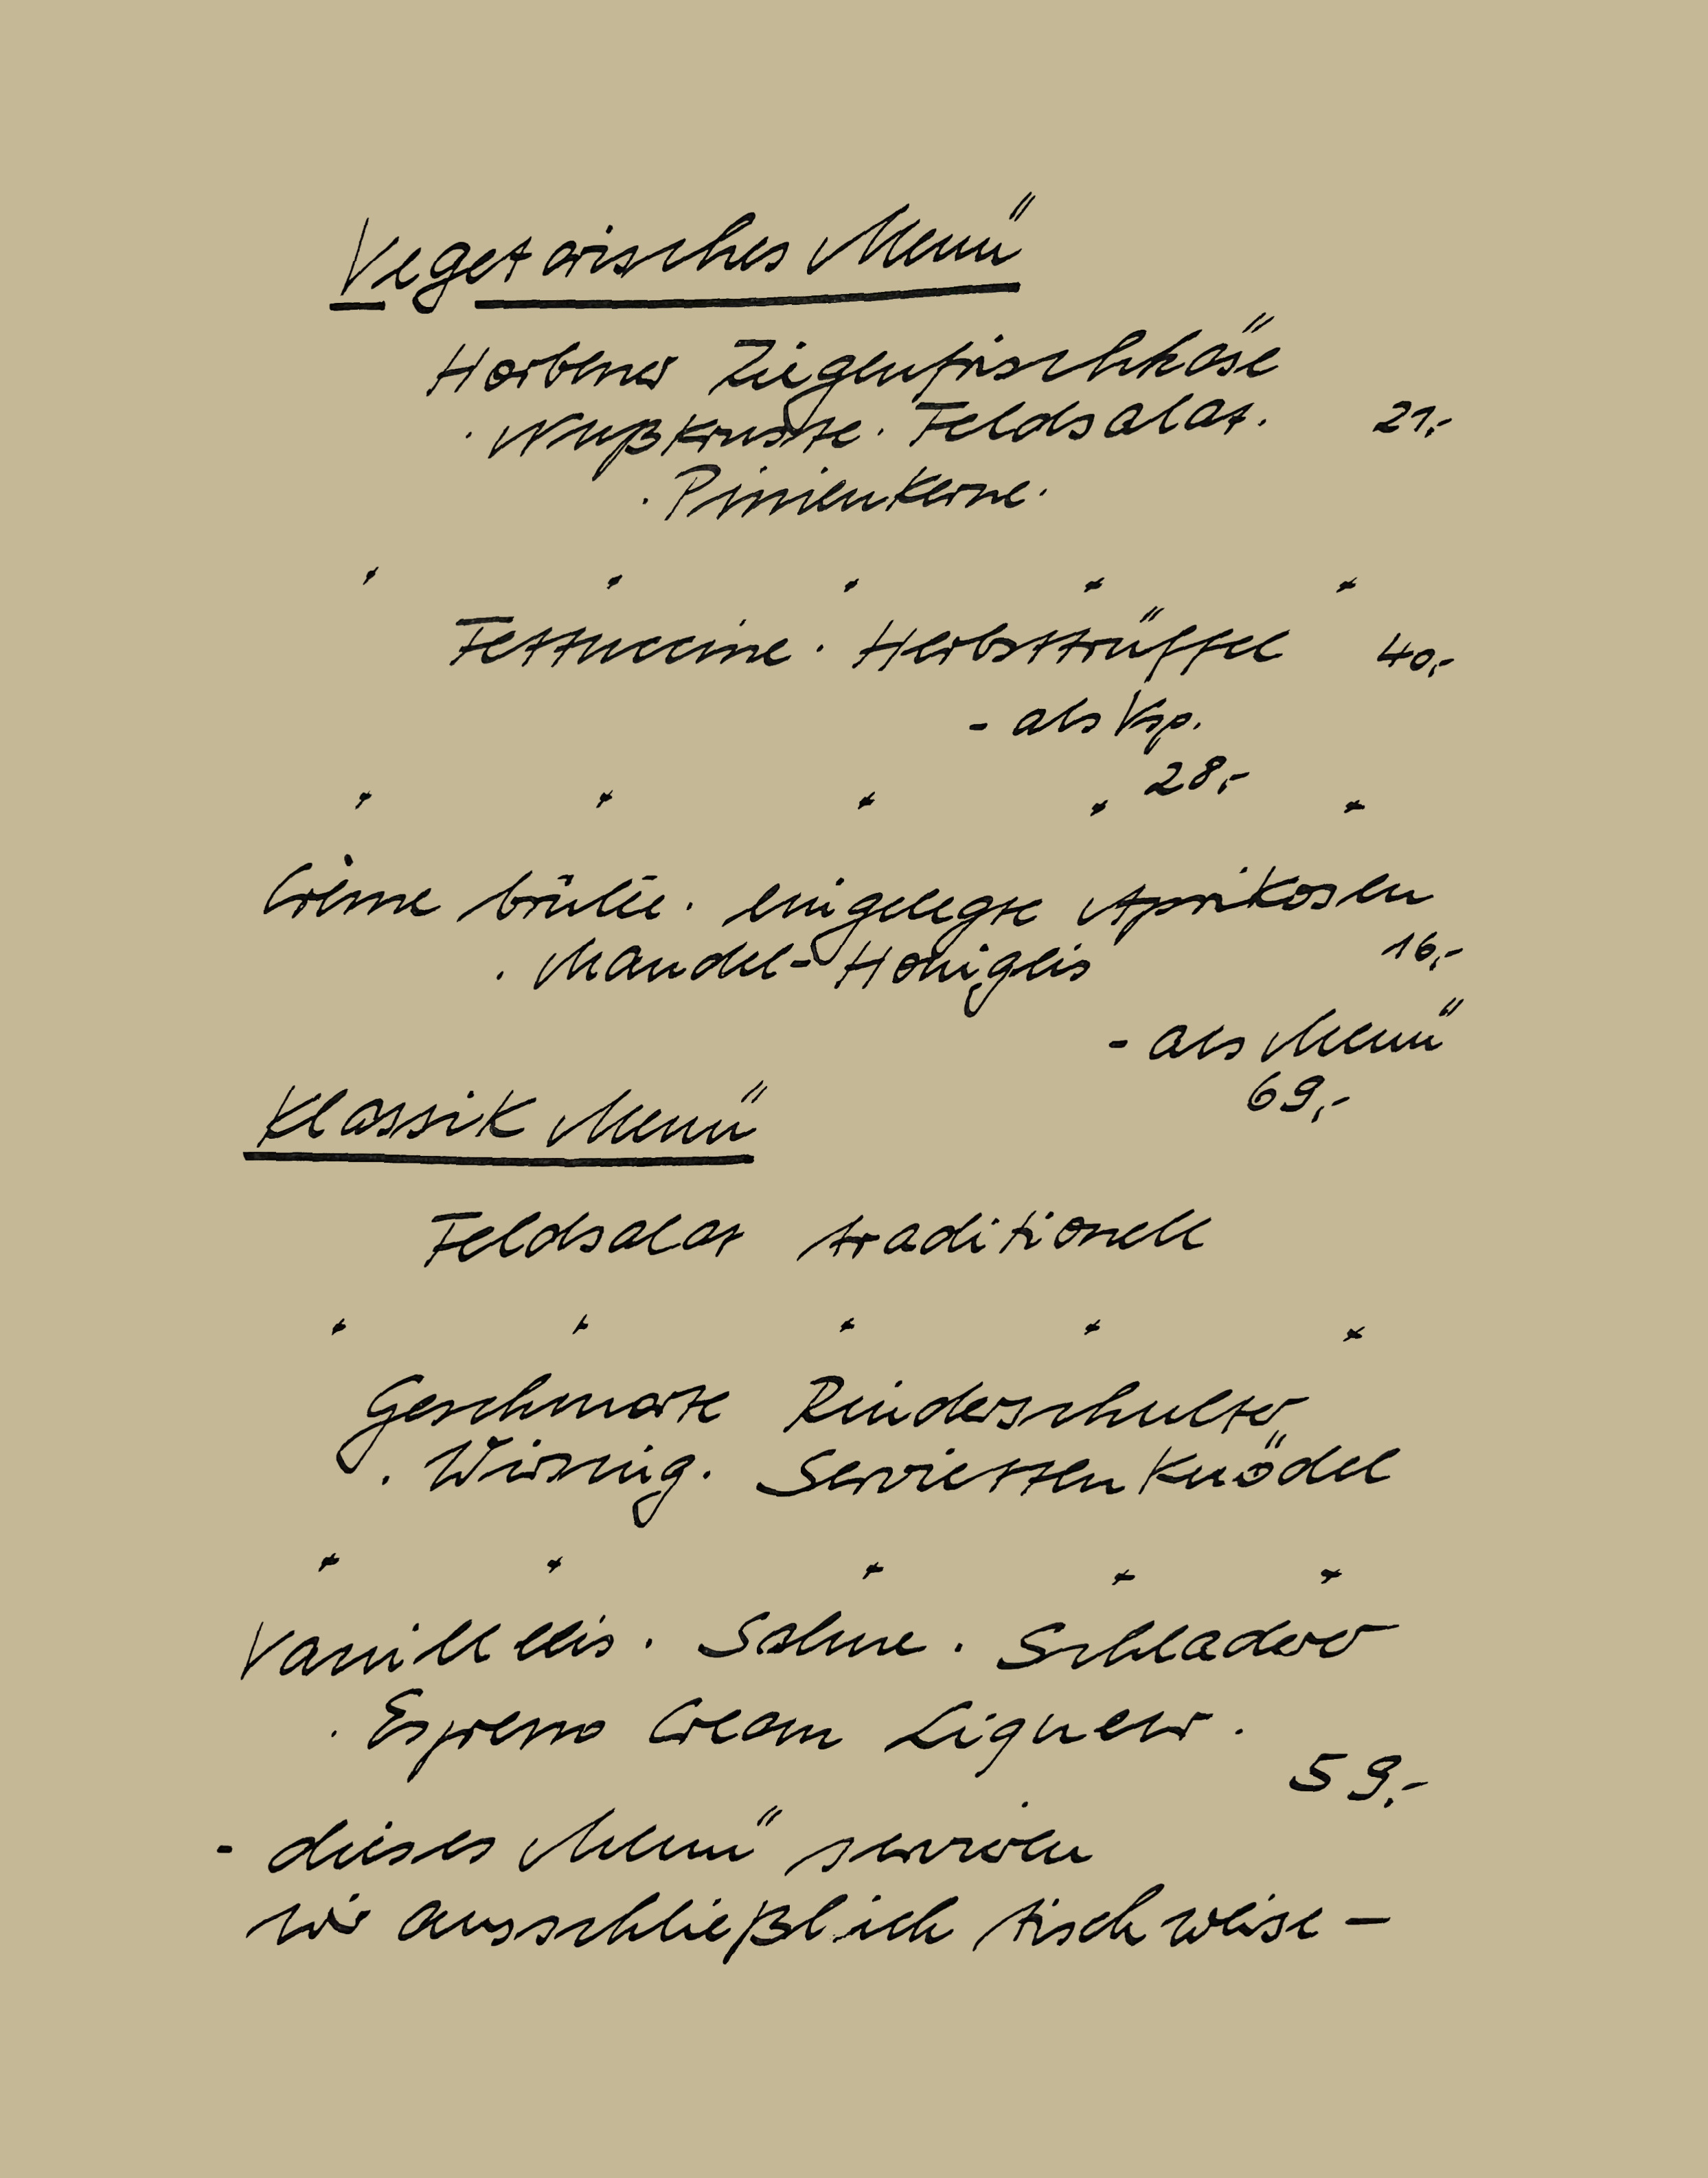 Vegetarisches Menü
Horbener Ziegenfrischkäse
· Nußkruste · Feldsalat · 21,-
· Pinienkerne ·
Fettuccine · Herbsttrüffel 40,-
- als Vsp.
28,-
Crème brûlée · eingelegte Aprikosen
· Mandel-Honigeis 16,-
- als Menü
69,-
Klassik Menü
Feldsalat traditionell
Geschmorte Rinderschulter
· Wirsing · Serviettenknödel
Vanilleeis · Sahne · Schladerer
· Espresso Cream Liqueur ·
59,-
- dieses Menü servieren
wir ausschließlich tischweise -